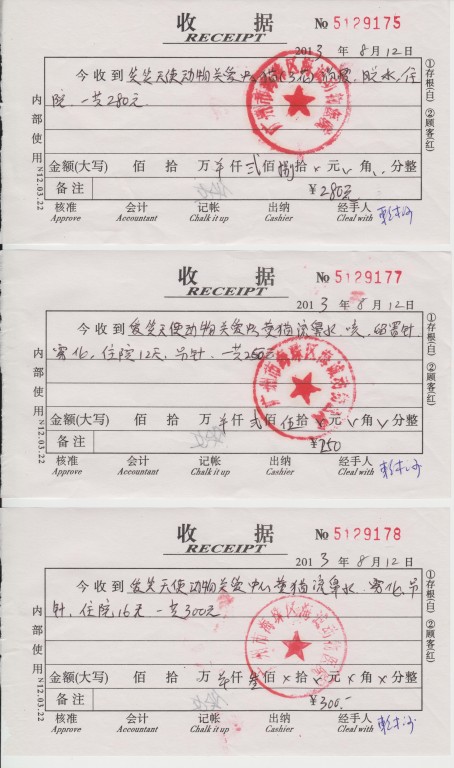 收 据
RECEIPT
№ 5129175
2013 年 8 月 12 日
今收到 笑笑天使动物关爱中心猫 脱水,住
院,一共280元
金额(大写) 佰 拾 万 仟 贰 佰 捌 拾 × 元 角 分整
备 注 ¥280元
核准 会计 记帐 出纳 经手人
Approve Accountant Chalk it up Cashier Cleal with
内部使用 N12.03.22
①存根(白) ②顾客(红)
广州市海珠区
收 据
RECEIPT
№ 5129177
2013 年 8 月 12 日
今收到 笑天使动物关爱中心 猫流鼻水 咳,
雾化,住院12天,吊针,一共250元
金额(大写) 佰 拾 万 仟 贰 佰 伍 拾 元 角 分整
备 注 ¥250
核准 会计 记帐 出纳 经手人
Approve Accountant Chalk it up Cashier Cleal with
内部使用 N12.03.22
①存根(白) ②顾客(红)
广州市海珠区
收 据
RECEIPT
№ 5129178
2013 年 8 月 12 日
今收到 笑天使动物关爱中心 猫流鼻水 雾化,吊
针,住院16天 一共300元
金额(大写) 佰 拾 万 仟 叁 佰 × 拾 × 元 × 角 × 分整
备 注 ¥300.-
核准 会计 记帐 出纳 经手人
Approve Accountant Chalk it up Cashier Cleal with
内部使用 N12.03.22
①存根(白) ②顾客(红)
广州市海珠区